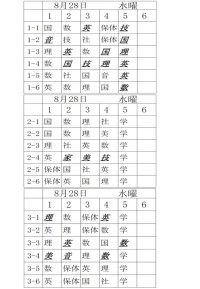 8月28日 水曜
1 2 3 4 5 6
1-1 国 数 英 保体 技
1-2 音 技 社 保体 国
1-3 理 英 数 国 理
1-4 数 国 技 理 英
1-5 数 社 国 音 英
1-6 英 理 社 国 数
8月28日 水曜
1 2 3 4 5 6
2-1 国 数 理 社 学
2-2 国 数 理 美 学
2-3 理 社 英 数 学
2-4 英 家 美 技 学
2-5 社 国 数 英 学
2-6 英 国 理 社 学
8月28日 水曜
1 2 3 4 5 6
3-1 理 数 保体 英 学
3-2 英 理 数 保体 学
3-3 理 英 数 国 数
3-4 美 音 理 数 学
3-5 数 保体 英 理 学
3-6 保体 英 国 理 学